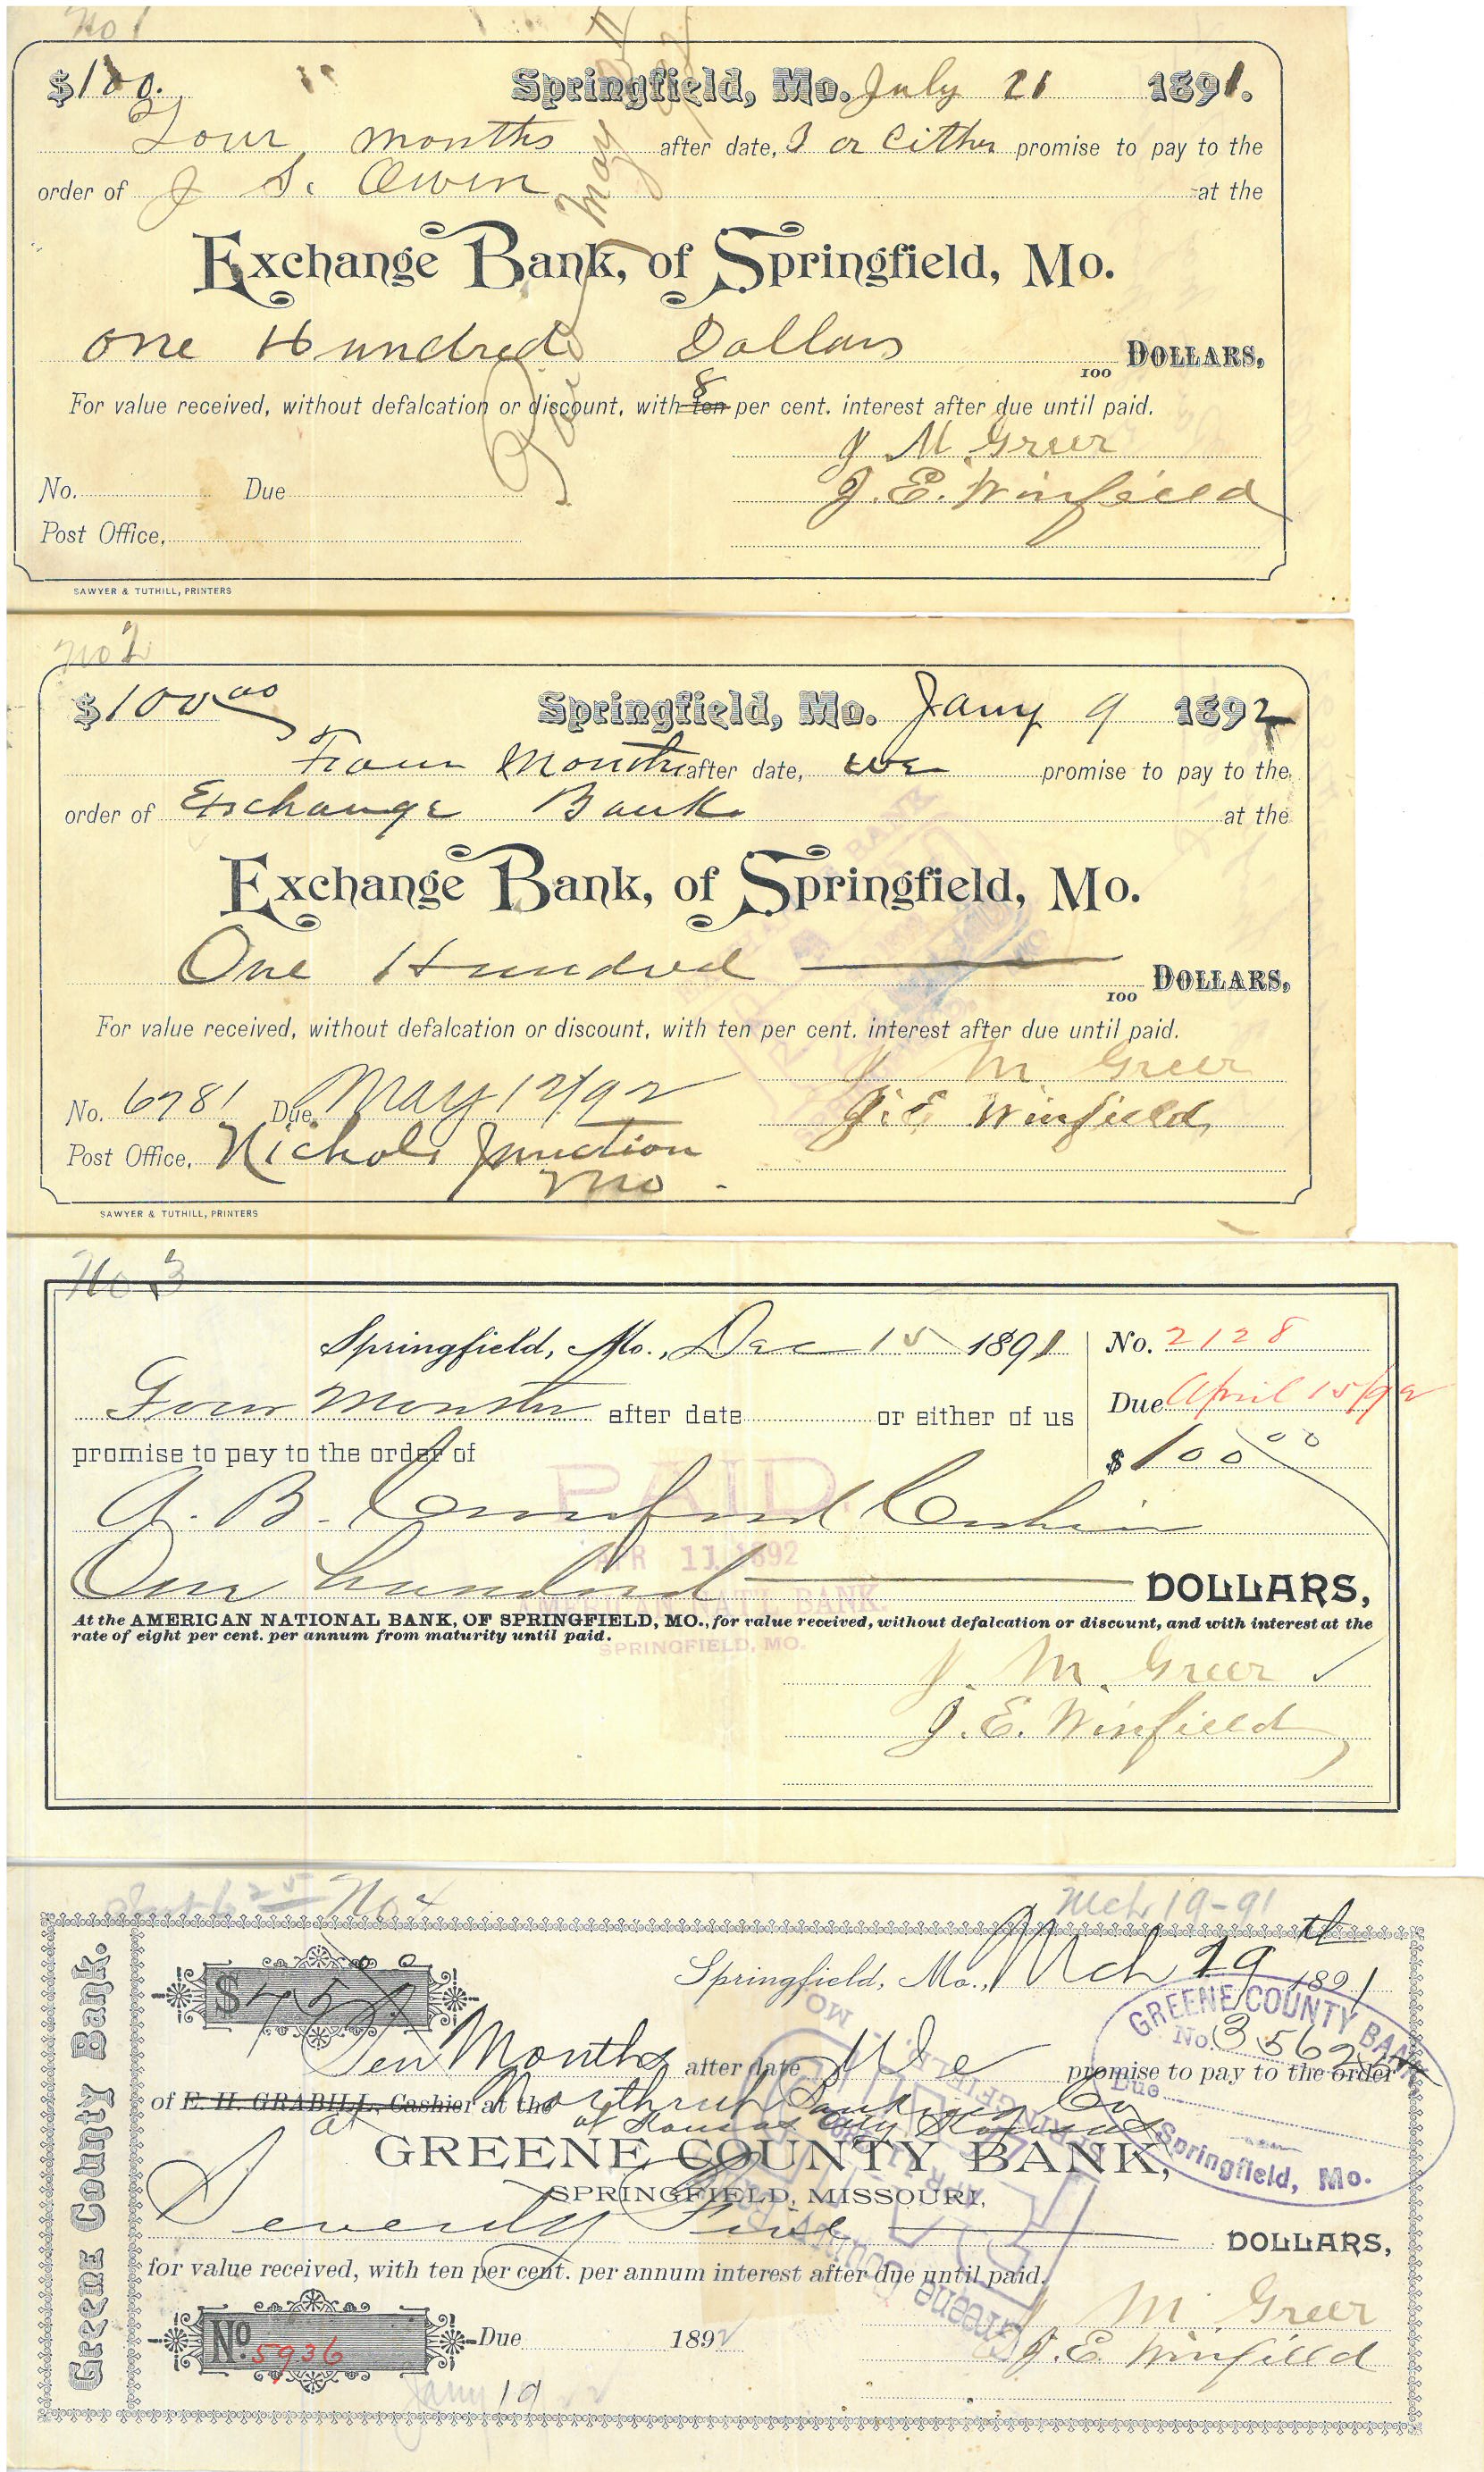 No 1
$100. Springfield, Mo. July 21 1891.
Four months after date, I or Either promise to pay to the
order of J S. Owen at the
Exchange Bank, of Springfield, Mo.
One Hundred Dollars 100 DOLLARS,
For value received, without defalcation or discount, with 8 ten per cent. interest after due until paid.
J M Greer
No. Due J. E. Winfield
Post Office,
Paid May
SAWYER & TUTHILL, PRINTERS
No 2
$100 00 Springfield, Mo. Jany 9 1892
Four Months after date, we promise to pay to the
order of Exchange Bank at the
Exchange Bank, of Springfield, Mo.
One Hundred 100 DOLLARS,
For value received, without defalcation or discount, with ten per cent. interest after due until paid.
J M. Greer
No. 6781 Due May 12/92 J. E. Winfield
Post Office, Nichols Junction
Mo
SAWYER & TUTHILL, PRINTERS
No 3
Springfield, Mo., Dec 15 1891 No. 2128
Four Months after date or either of us Due April 15/92
promise to pay to the order of $100 00
PAID
A. B. Crawford Cashier
APR 11 1892
One hundred DOLLARS,
AMERICAN NAT'L BANK.
At the AMERICAN NATIONAL BANK, OF SPRINGFIELD, MO., for value received, without defalcation or discount, and with interest at the
rate of eight per cent. per annum from maturity until paid.
SPRINGFIELD, MO.
J. M. Greer
J. E. Winfield
No 4 Mch 19-91
Greene County Bank.
$75 00 Springfield, Mo., Mch 19th 1891
GREENE COUNTY BANK
No. 35624
Due
Springfield, Mo.
Ten Months after date We promise to pay to the order
of E. H. GRABILL, Cashier at the Northrup Banking Co
at of Kansas City Kansas
GREENE COUNTY BANK,
SPRINGFIELD, MISSOURI,
Seventy Five DOLLARS,
for value received, with ten per cent. per annum interest after due until paid.
J M. Greer
No. 5936 Due 1892 J. E. Winfield
Jany 19